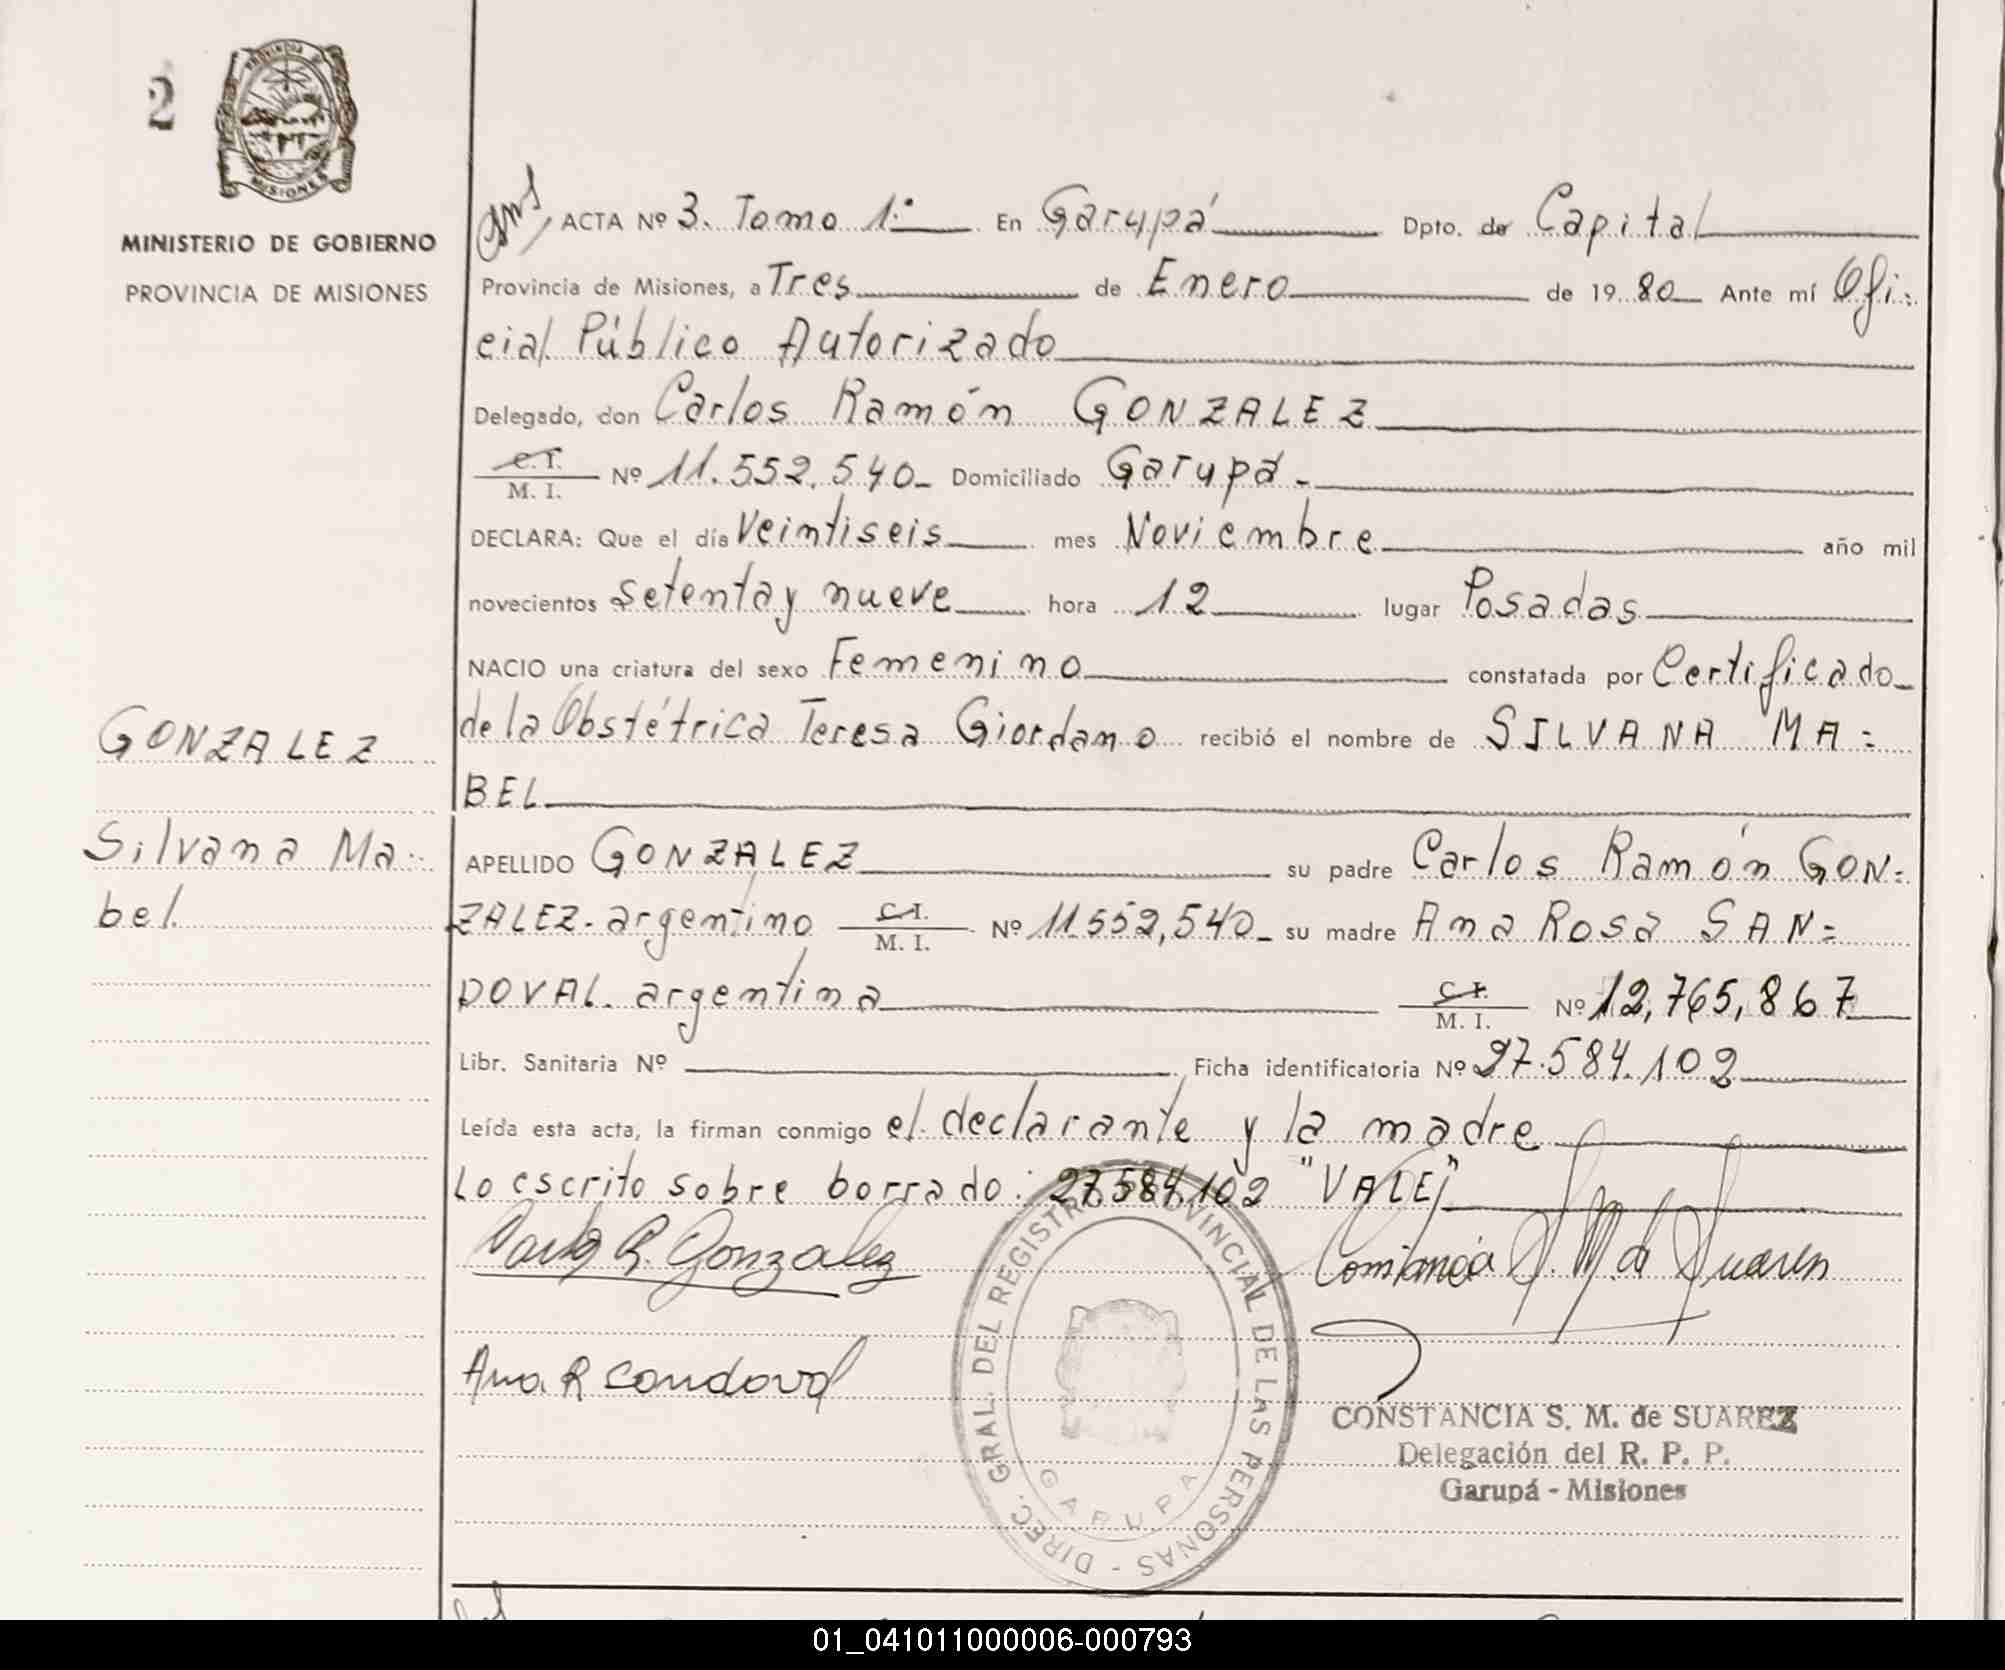 2
PROVINCIA DE
MISIONES
MINISTERIO DE GOBIERNO
PROVINCIA DE MISIONES
GONZALEZ
Silvana Ma=
bel.
ACTA Nº 3. Tomo 1º En Garupá Dpto. de Capital
Provincia de Misiones, a Tres de Enero de 1980 Ante mí Ofi=
cial Público Autorizado
Delegado, don Carlos Ramón GONZALEZ
C. I. / M. I. Nº 11.552.540- Domiciliado Garupá-
DECLARA: Que el día Veintiseis mes Noviembre año mil
novecientos setenta y nueve hora 12 lugar Posadas
NACIO una criatura del sexo Femenino constatada por Certificado
de la Obstétrica Teresa Giordano recibió el nombre de SILVANA MA=
BEL
APELLIDO GONZALEZ su padre Carlos Ramón GON=
ZALEZ- argentino C. I. / M. I. Nº 11.552,540- su madre Ana Rosa SAN=
DOVAL. argentina C. I. / M. I. Nº 12,765,867
Libr. Sanitaria Nº Ficha identificatoria Nº 27.584.102
Leída esta acta, la firman conmigo el declarante y la madre
Lo escrito sobre borrado: 27.584.102 "VALE"
Carlos R. Gonzalez
Constancia S. M. de Suarez
Ana R Sandoval
DIREC. GRAL. DEL REGISTRO PROVINCIAL DE LAS PERSONAS -
GARUPA
CONSTANCIA S. M. de SUAREZ
Delegación del R. P. P.
Garupá - Misiones
01_041011000006-000793